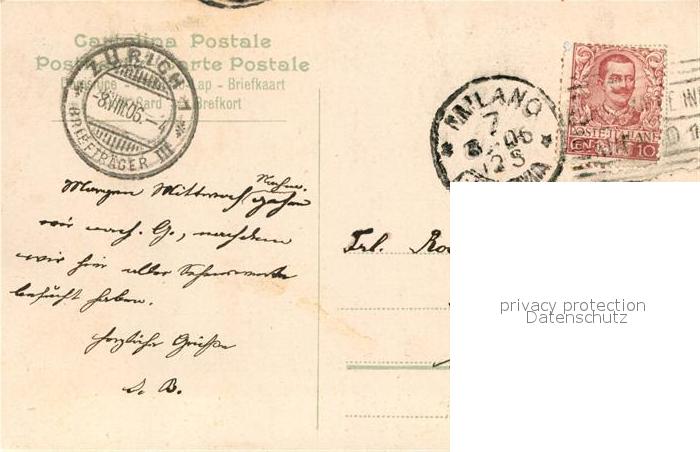 Cartolina Postale
Postkarte Carte Postale
Lap - Briefkaart
Card Brefkort
ZÜRICH 1
-8.VIII.06.-4
BRIEFTRÄGER III
MILANO
7
8 06
POSTE ITALIANE
CENT. 10
Morgen Mittwoch Nachm. gehen
wir nach G., nachdem
wir hier alles Sehenswerte
besucht haben.
herzliche Grüße
S. B.
Frl.
privacy protection
Datenschutz